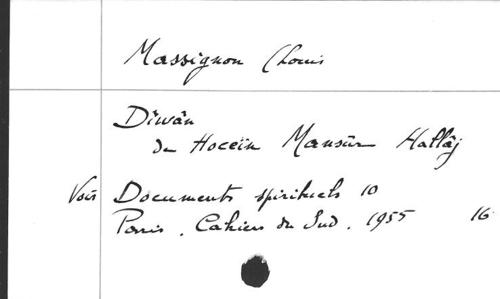 Massignon (Louis
Dîwân
de Hoceïn Mansûr Hallâj
Voir Documents spirituels 10
Paris. Cahiers du Sud. 1955 16